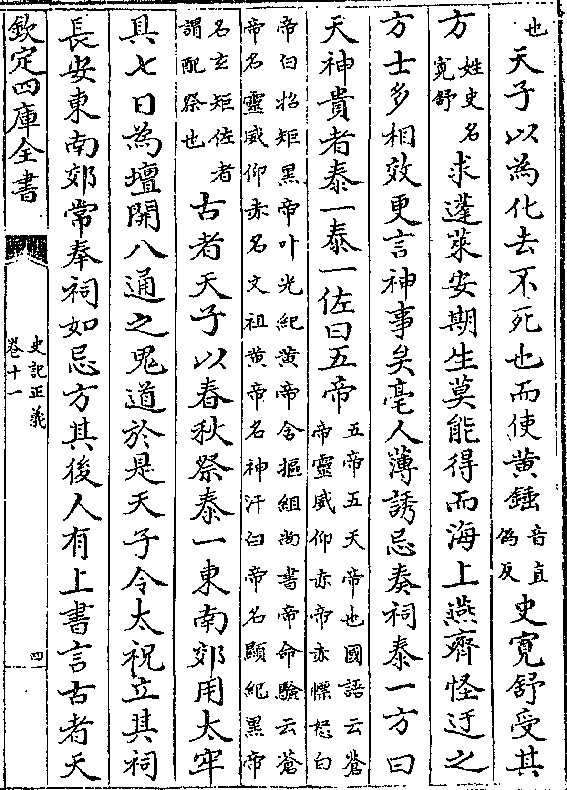 也天子以為化去不死也而使黄錘音直偽反史寛舒受其
方姓史名寛舒求蓬萊安期生莫能得而海上燕齊怪迂之
方士多相效更言神事矣亳人薄誘忌奏祠泰一方曰
天神貴者泰一泰一佐曰五帝五帝五天帝也國語云蒼帝靈威仰赤帝赤熛怒白
帝白招矩黒帝叶光紀黄帝含樞紐尚書帝命驗云蒼帝名靈威仰赤名文祖黄帝名神汁白帝名顯紀黒帝
名玄矩佐者謂配祭也古者天子以春秋祭泰一東南郊用太牢
具七日為壇開八通之鬼道於是天子令太祝立其祠
長安東南郊常奉祠如忌方其後人有上書言古者天
欽定四庫全書
史記正義
卷十一
四